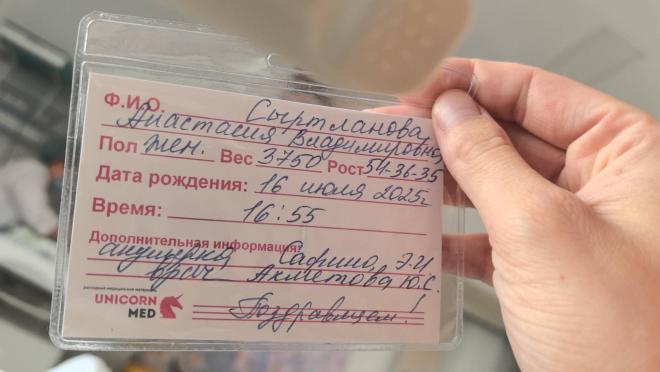 Ф.И.О. Сыртланова
Анастасия Владимировна
Пол жен. Вес 3750 Рост 54-36-35
Дата рождения: 16 июля 2025г
Время: 16:55
Дополнительная информация:
акушерка Сафино, Э.И
врач Ахметова Ю.С.
расходные медицинские материалы
UNICORN
MED
Поздравляем!